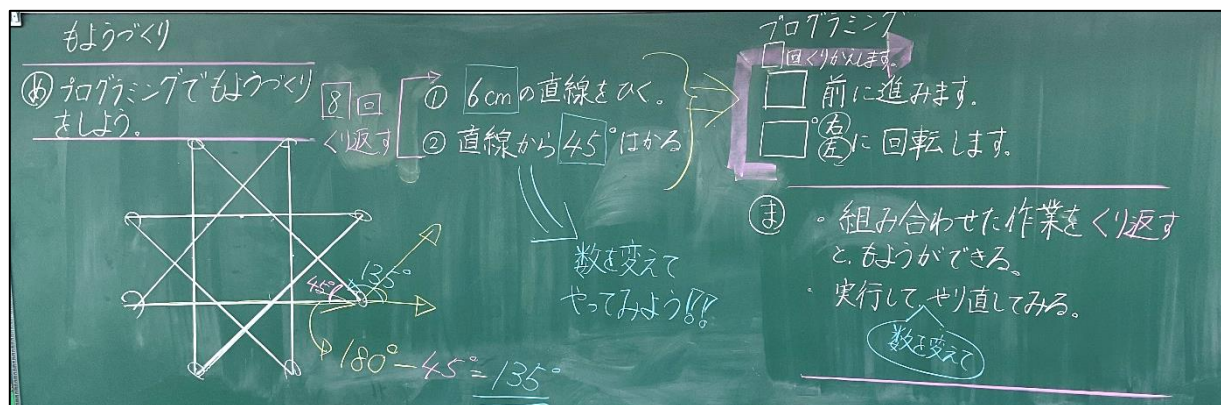 もようづくり
め プログラミングでもようづくり
をしよう。
8回
くり返す
① 6cmの直線をひく。
② 直線から45°はかる
数を変えて
やってみよう!!
45°
135°
180°-45°=135°
プログラミング
□回くりかえします。
□ 前に進みます。
□°右
左に回転します。
ま ・組み合わせた作業をくり返す
と、もようができる。
・実行して、やり直してみる。
数を変えて